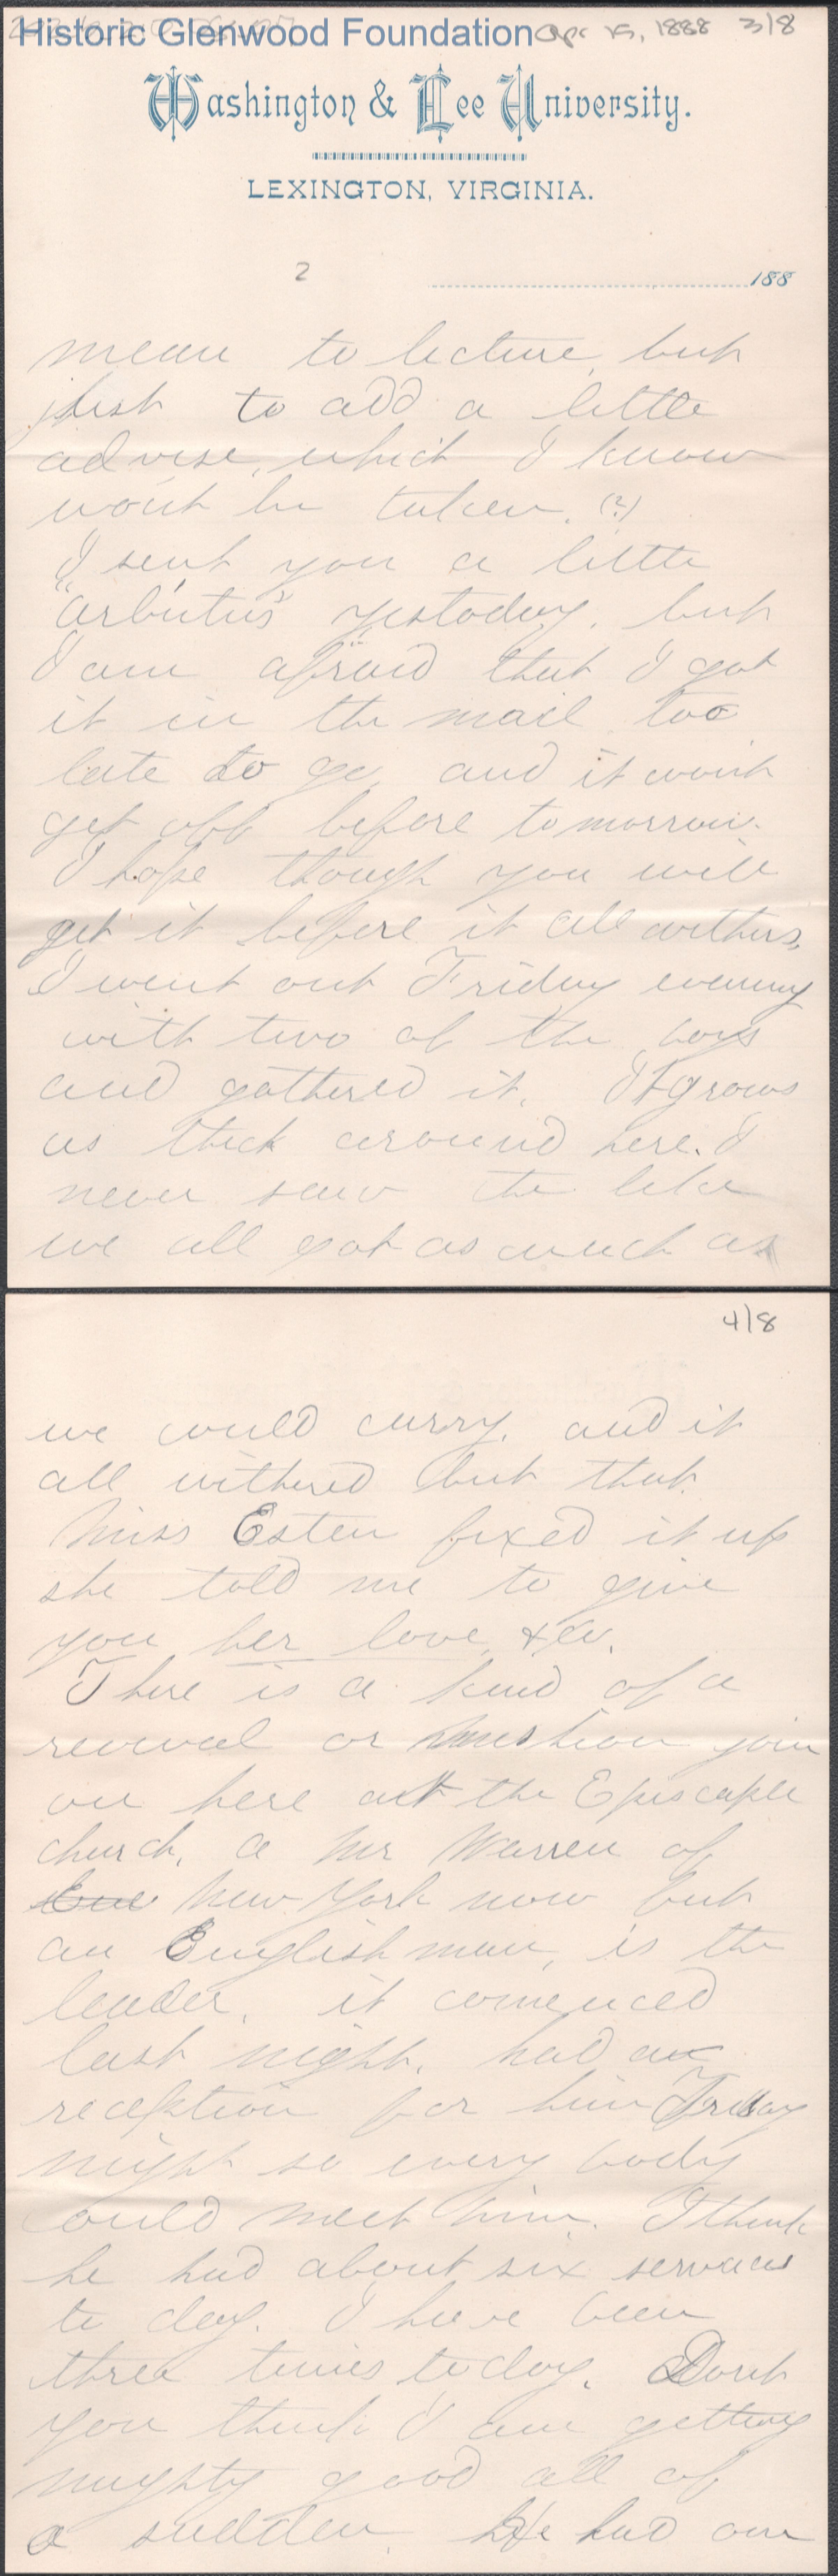 Historic Glenwood Foundation Apr 15, 1888 3/8
Washington & Lee University.
LEXINGTON, VIRGINIA.
2 188
mean to lecture, but
just to add a little
advise, which I know
won't be taken. (?)
I sent you a little
"arbutus" yestoday, but
I am afraid that I got
it in the mail too
late to go, and it wont
get off before tomorrow.
I hope though you will
get it before it all withers,
I went out Friday evening
with two of the boys
and gathered it. It grows
as thick around here. I
never saw the like
we all got as much as
4/8
we could carry, and it
all withered but that.
Miss Esten fixed it up
she told me to give
you her love, &c.
There is a kind of a
revival or mission goin
on here at the Episcaple
church, a Mr Warren of
New York now but
an Englishman, is the
leader, it comenced
last night, had a
reception for him Friday
night so every body
could meet him. I think
he had about six services
to day. I have been
three times to day. Dont
you think I am getting
mighty good all of
a sudden. He had one